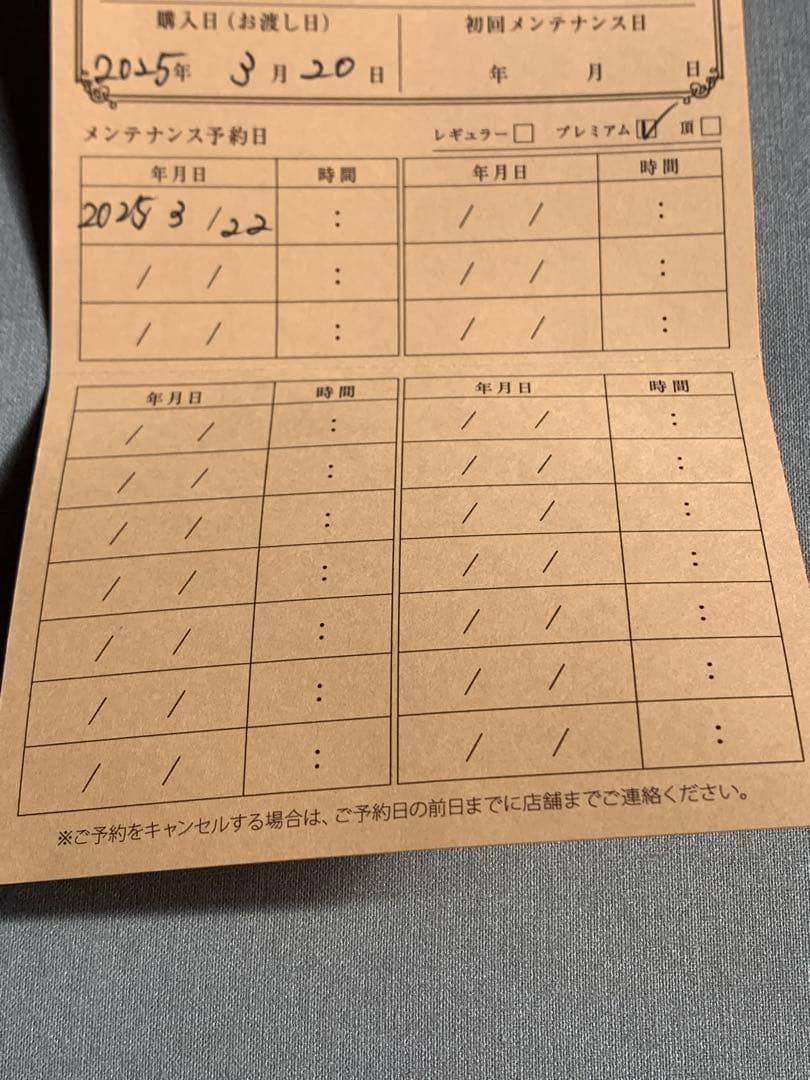 購入日(お渡し日) 初回メンテナンス日
2025年 3月20日 年 月 日
メンテナンス予約日 レギュラー□ プレミアム☑ 頂□
年月日 時間 年月日 時間
2025 3 /22 : / / :
/ / : / / :
/ / : / / :
年月日 時間 年月日 時間
/ / : / / :
/ / : / / :
/ / : / / :
/ / : / / :
/ / : / / :
/ / : / / :
/ / : / / :
※ご予約をキャンセルする場合は、ご予約日の前日までに店舗までご連絡ください。